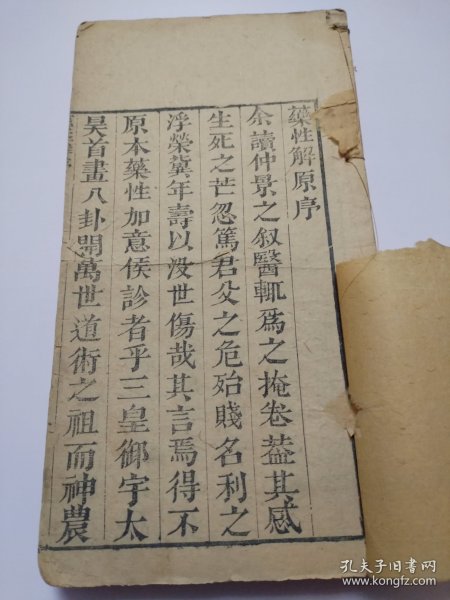 藥性解原序
余讀仲景之叙醫輒爲之掩卷葢其感
生死之芒忽篤君父之危殆賤名利之
浮榮冀年壽以没世傷哉其言焉得不
原本藥性加意侯診者乎三皇御宇太
昊首畫八卦開萬世道術之祖而神農
孔夫子旧书网
www.kongfz.com